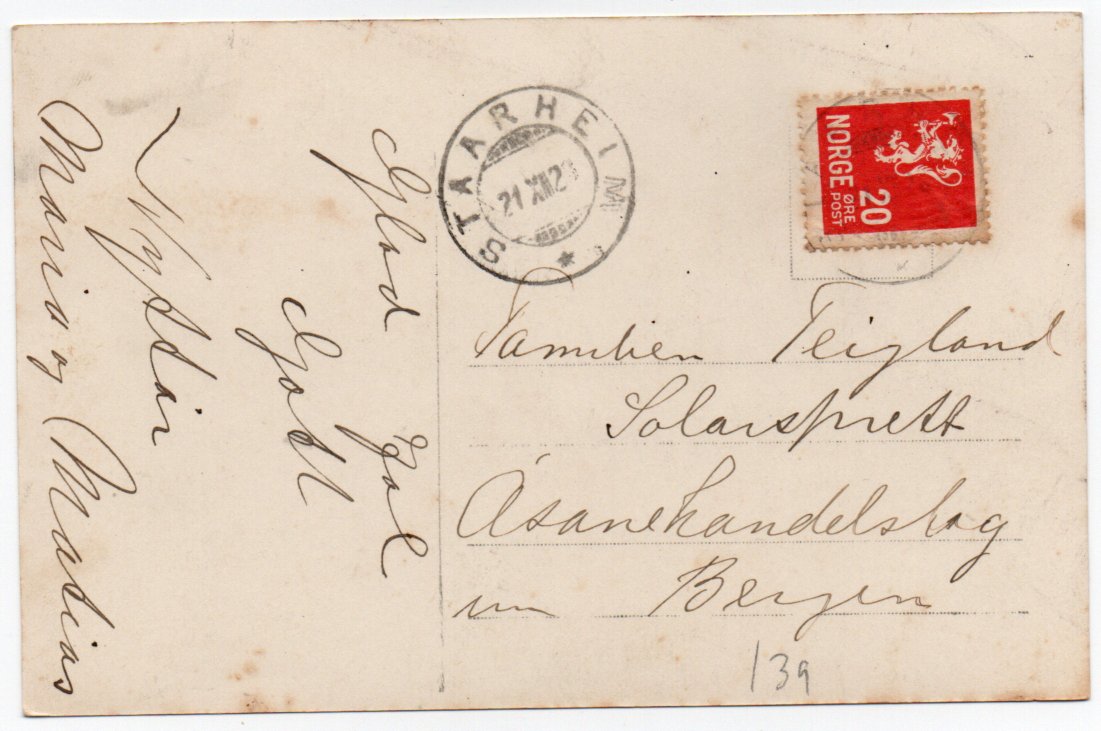 Glad Jol
Gott
Nyttår
Maria og Matias
STAARHEIM
21 XII 2
NORGE
20
ØRE
POST
Familien Teigland
Solarsprett
Åsanehandelslag
um Bergen
139